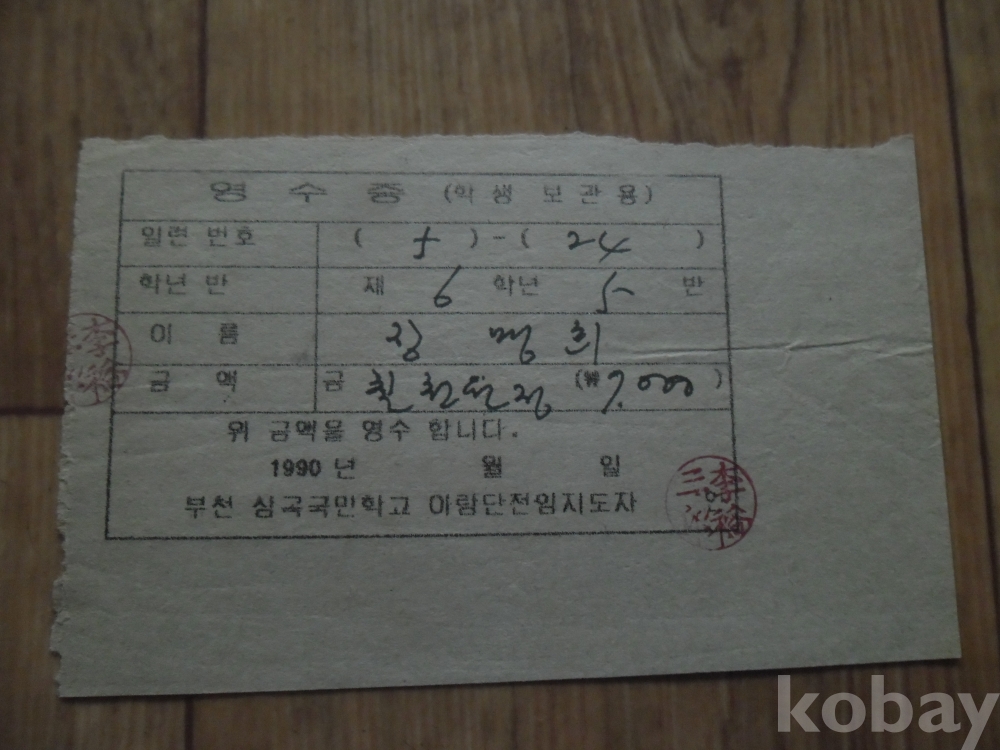 영 수 증 (학 생 보 관 용)
일련 번호 ( 5 ) - ( 24 )
학년 반 제 6 학년 5 반
이 름 희
금 액 금 칠천원정 (₩ 7,000 )
위 금액을 영수 합니다.
1990 년 월 일
부천 삼국국민학교 아람단전임지도자
kobay